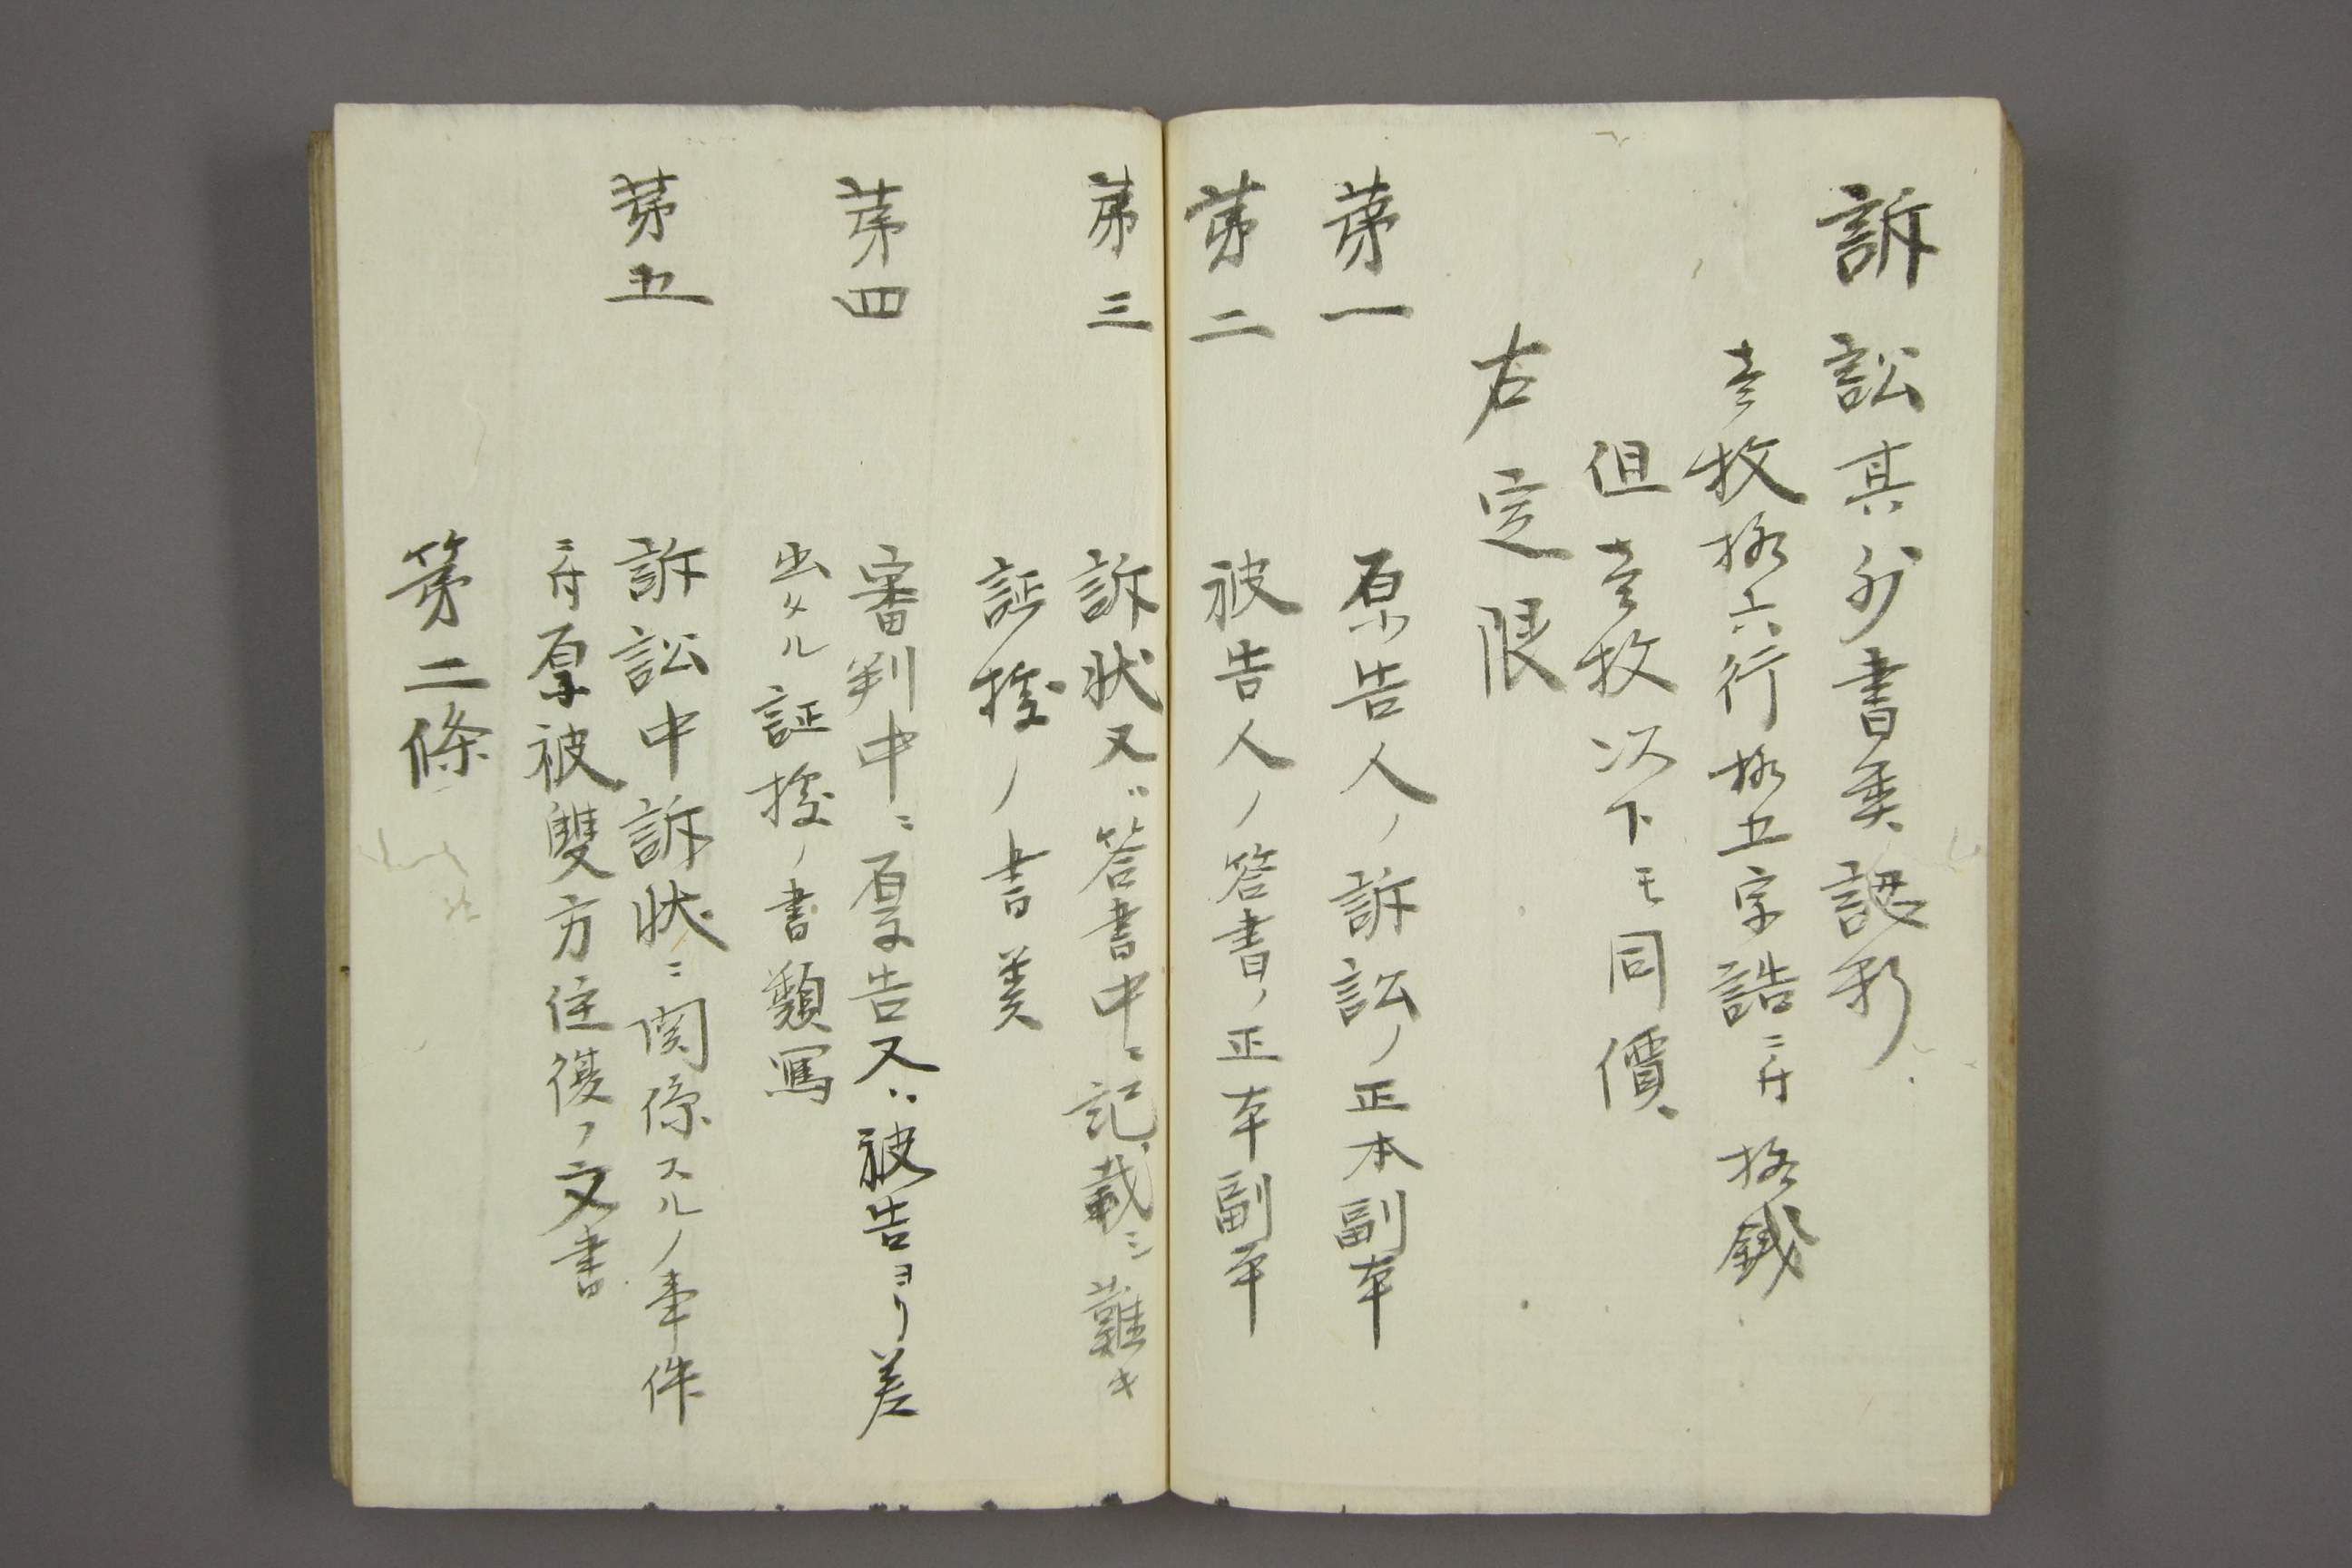 訴訟其外書類認料
壱枚拾六行拾五字詰ニ付拾銭
但壱枚以下モ同價
右定限
第一 原告人ノ訴訟ノ正本副本
第二 被告人ノ答書ノ正本副本
第三 訴状又ハ答書中ニ記載シ難キ
証拠ノ書類
第四 審判中ニ原告又ハ被告ヨリ差
出タル証拠ノ書類寫
第五 訴訟中訴状ニ関係スルノ事件
ニ付原被雙方往復ノ文書
第二條